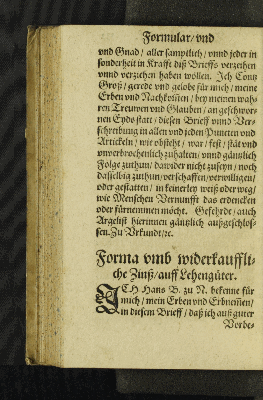 Formular/ vnd
vnd Gnad/ aller samptlich/ vnnd jeder in
sonderheit in Krafft diß Brieffs verzeihen
vnnd verziehen haben wöllen. Ich Contz
Groß/ gerede vnd gelobe für mich/ meine
Erben vnd Nachkom̃en/ bey meinen wah-
ren Treuwen vnd Glauben/ an geschwor-
nen Eyds statt/ diesen Brieff vnnd Ver-
schreibung in allen vnd jeden Puncten vnd
Artickeln/ wie obsteht/ war/ fest/ stät vnd
vnverbrochenlich zuhalten/ vnnd gäntzlich
Folge zuthun/ darwider nicht zuseyn/ noch
dasselbig zuthun/ verschaffen/ verwilligen/
oder gestatten/ in keinerley weiß oder weg/
wie Menschen Vernunfft das erdencken
oder fürnemmen möcht. Gefehrdt/ auch
Argelist hierinnen gäntzlich außgeschlos-
sen. Zu Vrkundt/ ꝛc.
Forma vmb widerkauffli-
che Zinß/ auff Lehengüter.
ICH Hans B. zu N. bekenne für
mich/ mein Erben vnd Erbneḿen/
in diesem Brieff/ daß ich auß guter
Vorbe-